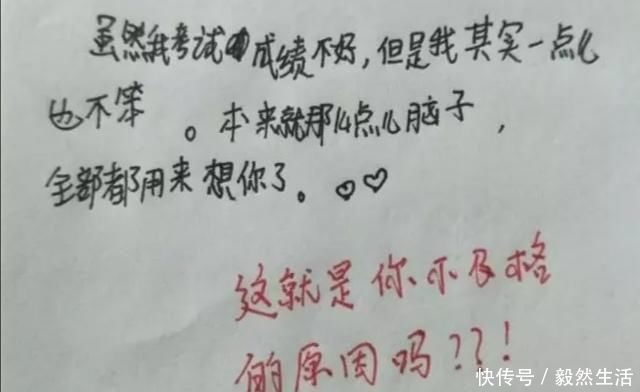 虽然我考试成绩不好，但是我其实一点儿
也不笨。本来就那么点儿脑子，
全部都用来想你了。♡♡
这就是你不及格
的原因吗??!
快传号／毅然生活